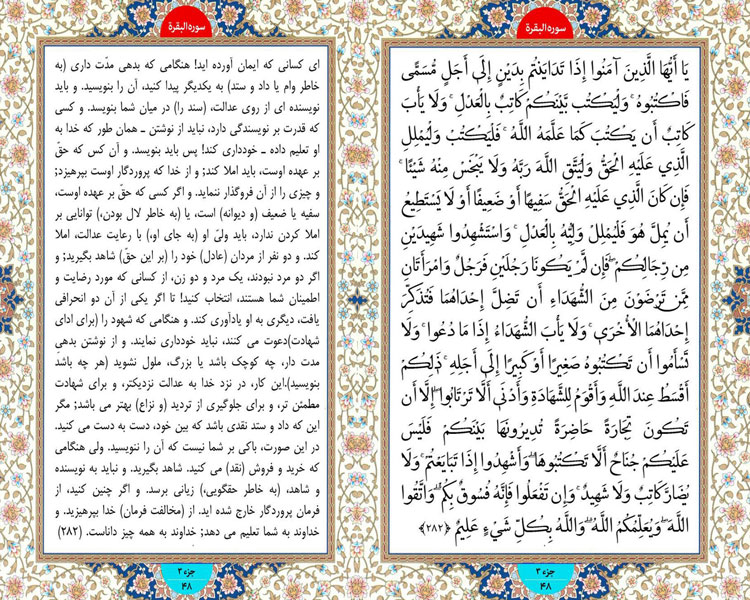 سوره البقرة
یَا أَیُّهَا الَّذِینَ آمَنُوا إِذَا تَدَایَنْتُم بِدَیْنٍ إِلَى أَجَلٍ مُّسَمًّى
فَاكْتُبُوهُ ۚ وَلْیَكْتُب بَّیْنَكُمْ كَاتِبٌ بِالْعَدْلِ ۚ وَلَا یَأْبَ
كَاتِبٌ أَن یَكْتُبَ كَمَا عَلَّمَهُ اللَّهُ ۚ فَلْیَكْتُبْ وَلْیُمْلِلِ
الَّذِی عَلَیْهِ الْحَقُّ وَلْیَتَّقِ اللَّهَ رَبَّهُ وَلَا یَبْخَسْ مِنْهُ شَیْئًا ۚ
فَإِن كَانَ الَّذِی عَلَیْهِ الْحَقُّ سَفِیهًا أَوْ ضَعِیفًا أَوْ لَا یَسْتَطِیعُ
أَن یُمِلَّ هُوَ فَلْیُمْلِلْ وَلِیُّهُ بِالْعَدْلِ ۚ وَاسْتَشْهِدُوا شَهِیدَیْنِ
مِن رِّجَالِكُمْ ۖ فَإِن لَّمْ یَكُونَا رَجُلَیْنِ فَرَجُلٌ وَامْرَأَتَانِ
مِمَّن تَرْضَوْنَ مِنَ الشُّهَدَاءِ أَن تَضِلَّ إِحْدَاهُمَا فَتُذَكِّرَ
إِحْدَاهُمَا الْأُخْرَى ۚ وَلَا یَأْبَ الشُّهَدَاءُ إِذَا مَا دُعُوا ۚ وَلَا
تَسْأَمُوا أَن تَكْتُبُوهُ صَغِیرًا أَوْ كَبِیرًا إِلَى أَجَلِهِ ۚ ذَٰلِكُمْ
أَقْسَطُ عِندَ اللَّهِ وَأَقْوَمُ لِلشَّهَادَةِ وَأَدْنَى أَلَّا تَرْتَابُوا ۖ إِلَّا أَن
تَكُونَ تِجَارَةً حَاضِرَةً تُدِیرُونَهَا بَیْنَكُمْ فَلَیْسَ
عَلَیْكُمْ جُنَاحٌ أَلَّا تَكْتُبُوهَا ۗ وَأَشْهِدُوا إِذَا تَبَایَعْتُمْ ۚ وَلَا
یُضَارَّ كَاتِبٌ وَلَا شَهِیدٌ ۚ وَإِن تَفْعَلُوا فَإِنَّهُ فُسُوقٌ بِكُمْ ۗ وَاتَّقُوا
اللَّهَ ۖ وَیُعَلِّمُكُمُ اللَّهُ ۗ وَاللَّهُ بِكُلِّ شَیْءٍ عَلِیمٌ ﴿۲۸۲﴾
جزء ۳
۴۸
سوره البقرة
ای کسانی که ایمان آورده اید! هنگامی که بدهی مدّت داری (به
خاطر وام یا داد و ستد) به یکدیگر پیدا کنید، آن را بنویسید. و باید
نویسنده ای از روی عدالت، (سند را) در میان شما بنویسد. و کسی
که قدرت بر نویسندگی دارد، نباید از نوشتن ـ همان طور که خدا به
او تعلیم داده ـ خودداری کند! پس باید بنویسد. و آن کس که حقّ
بر عهده اوست، باید املا کند; و از خدا که پروردگار اوست بپرهیزد;
و چیزی را از آن فروگذار ننماید. و اگر کسی که حقّ بر عهده اوست،
سفیه یا ضعیف (و دیوانه) است، یا (به خاطر لال بودن،) توانایی بر
املا کردن ندارد، باید ولیّ او (به جای او،) با رعایت عدالت، املا
کند. و دو نفر از مردان (عادل) خود را (بر این حقّ) شاهد بگیرید; و
اگر دو مرد نبودند، یک مرد و دو زن، از کسانی که مورد رضایت و
اطمینان شما هستند، انتخاب کنید! تا اگر یکی از آن دو انحرافی
یافت، دیگری به او یادآوری کند. و هنگامی که شهود را (برای ادای
شهادت)دعوت می کنند، نباید خودداری نمایند. و از نوشتن بدهی
مدت دار، چه کوچک باشد یا بزرگ، ملول نشوید (هر چه باشد
بنویسید).این کار، در نزد خدا به عدالت نزدیکتر، و برای شهادت
مطمئن تر، و برای جلوگیری از تردید (و نزاع) بهتر می باشد; مگر
این که داد و ستد نقدی باشد که بین خود، دست به دست می کنید.
در این صورت، باکی بر شما نیست که آن را ننویسید. ولی هنگامی
که خرید و فروش (نقد) می کنید. شاهد بگیرید. و نباید به نویسنده
و شاهد، (به خاطر حقگویی،) زیانی برسد. و اگر چنین کنید، از
فرمان پروردگار خارج شده اید. از (مخالفت فرمان) خدا بپرهیزید. و
خداوند به شما تعلیم می دهد; خداوند به همه چیز داناست. (۲۸۲)
جزء ۳
۴۸